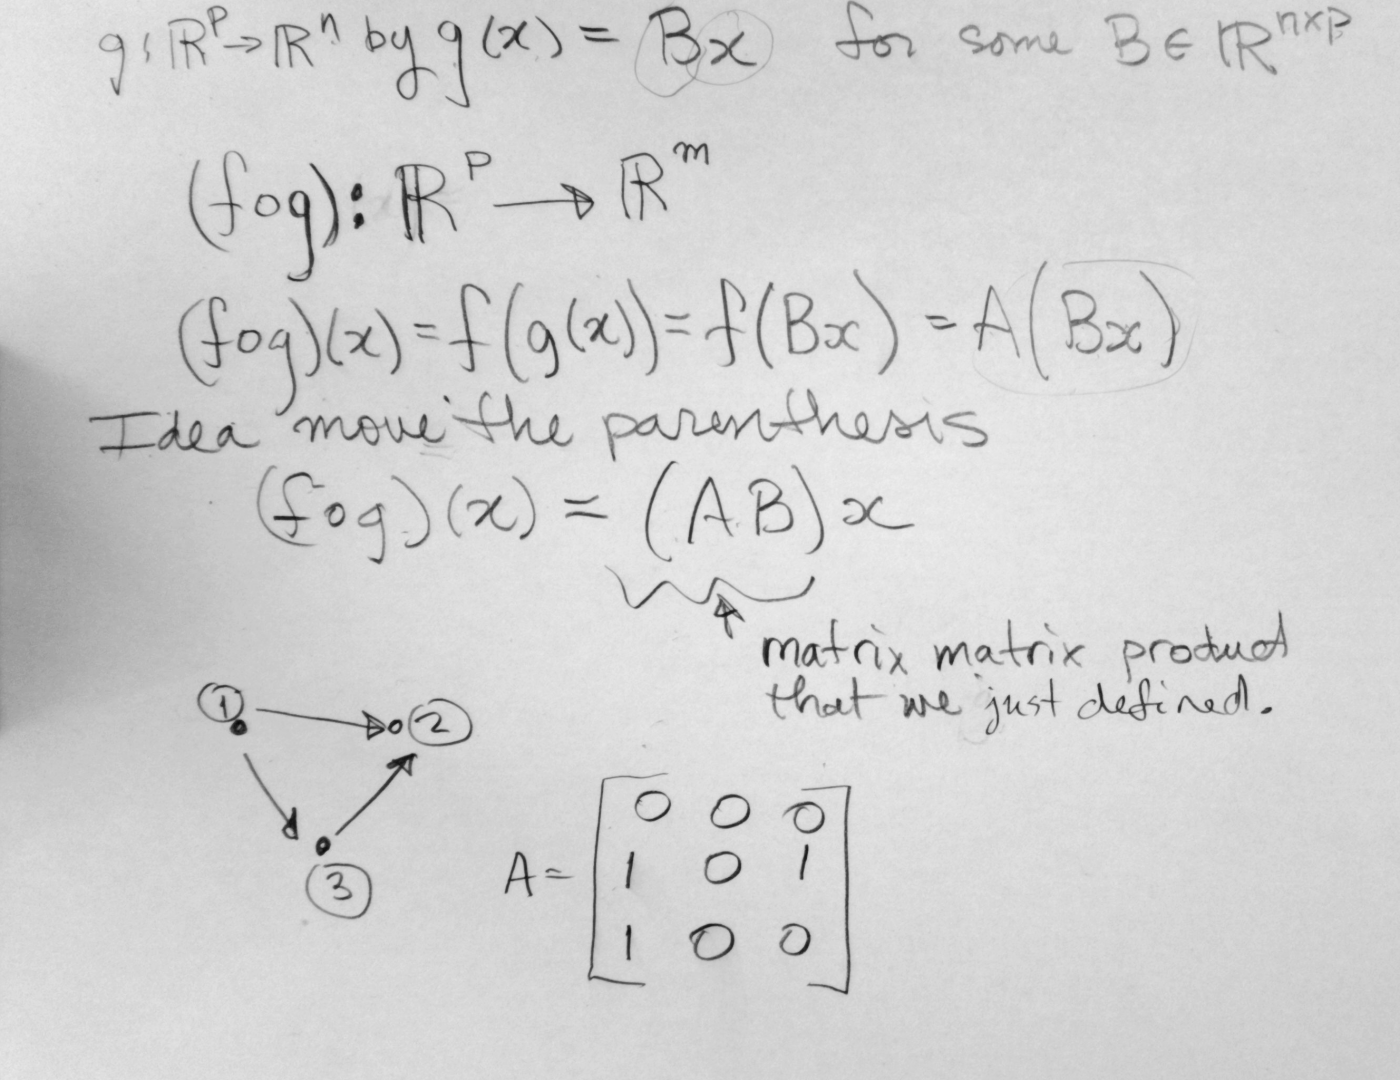 g: ℝᵖ → ℝⁿ by g(x) = Bx for some B ∈ ℝⁿˣᵖ
(f∘g): ℝᵖ → ℝᵐ
(f∘g)(x) = f(g(x)) = f(Bx) = A(Bx)
Idea move the parenthesis
(f∘g)(x) = (AB)x
matrix matrix product
that we just defined.
1 2
3
A =
0 0 0
1 0 1
1 0 0